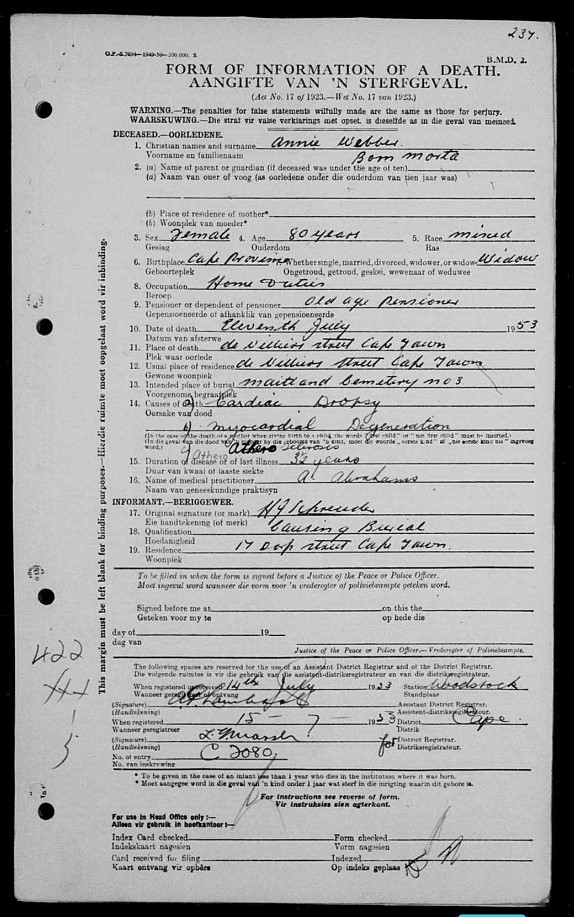 237.
G.P.-S.7604—1949-50—300,000. S.
B.M.D. 2.
FORM OF INFORMATION OF A DEATH.
AANGIFTE VAN 'N STERFGEVAL.
(Act No. 17 of 1923.—Wet No. 17 van 1923.)
WARNING.—The penalties for false statements wilfully made are the same as those for perjury.
WAARSKUWING.—Die straf vir valse verklarings met opset, is dieselfde as in die geval van meineed.
DECEASED.—OORLEDENE.
1. Christian names and surname Annie Webber
Voorname en familienaam Born Morta
2. (a) Name of parent or guardian (if deceased was under the age of ten)
(a) Naam van ouer of voog (as oorledene onder die ouderdom van tien jaar was)
(b) Place of residence of mother*
(b) Woonplek van moeder*
3. Sex Female 4. Age 80 years 5. Race mixed
Geslag Ouderdom Ras
6. Birthplace Cape Province Whether single, married, divorced, widower, or widow Widow
Geboorteplek Ongetroud, getroud, geskei, wewenaar of weduwee
8. Occupation Home Duties
Beroep
9. Pensioner or dependent of pensioner Old Age Pensioner
Gepensioeneerde of afhanklik van gepensioeneerde
10. Date of death Eleventh July 1953
Datum van afsterwe
11. Place of death de Villiers Street Cape Town
Plek waar oorlede
12. Usual place of residence de Villiers Street Cape Town
Gewone woonplek
13. Intended place of burial Maitland Cemetery No 3
Voorgenome begraafplek
14. Causes of death a) Cardiac Dropsy
Oorsake van dood
b) Myocardial Degeneration
(In the case of the death of a mother when giving birth to a child, the words "first child" or "not first child" must be inserted.)
c) Athero sclerosis
Athero
15. Duration of disease or of last illness 3½ years
Duur van kwaal of laaste siekte
16. Name of medical practitioner A. Abrahams
Naam van geneeskundige praktisyn
INFORMANT.—BERIGGEWER.
17. Original signature (or mark) H J Schreuder
Eie handtekening (of merk)
18. Qualification Causing Burial
Hoedanigheid
19. Residence 17 Dorp Street Cape Town.
Woonplek
To be filled in when the form is signed before a Justice of the Peace or Police Officer.
Moet ingevul word wanneer die vorm voor 'n vrederegter of polisiebeampte geteken word.
Signed before me at on this the
Geteken voor my te op hede die
day of 19
dag van
Justice of the Peace or Police Officer.—Vrederegter of Polisiebeampte.
The following spaces are reserved for the use of an Assistant District Registrar and of the District Registrar.
Die volgende ruimtes is vir die gebruik van assistent-distriksregistrateur en van die distriksregistrateur.
When registered or received 14th July 1953 Station Woodstock
Wanneer geregistreer of ontvang Standplaas
(Signature) Assistant District Registrar.
(Handtekening) Assistent-distriksregistrateur.
When registered 15 - 7 - 1953 District Cape.
Wanneer geregistreer Distrik
(Signature) for District Registrar.
(Handtekening) Distriksregistrateur.
No. of entry C 2080.
No. van inskrywing
* To be given in the case of an infant less than 1 year who dies in the institution where it was born.
* Moet aangegee word in die geval van 'n kind onder 1 jaar wat sterf in die inrigting waarin dit gebore is.
For instructions see reverse of form.
Vir instruksies sien agterkant.
For use in Head Office only:—
Alleen vir gebruik in hoofkantoor:—
Index Card checked Form checked
Indekskaart nagesien Vorm nagesien
Card received for filing Indexed
Kaart ontvang vir opbêre Op indeks geplaas
This margin must be left blank for binding purposes—Hierdie ruimte moet oopgelaat word vir inbinding.
422